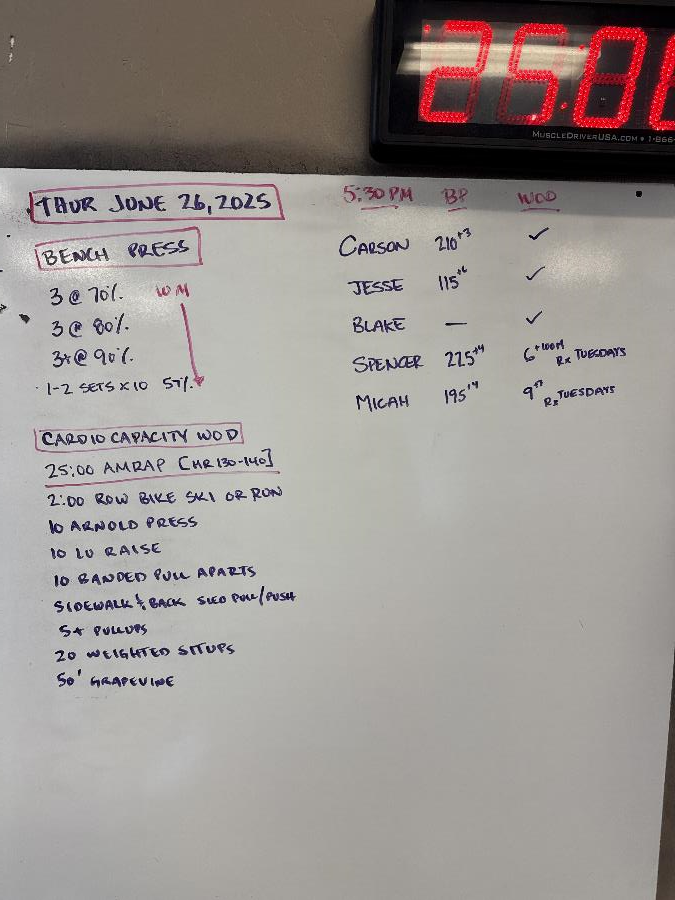 25:0
MUSCLEDRIVERUSA.COM • 1-866-
THUR JUNE 26, 2025
BENCH PRESS
3 @ 70%. WM
3 @ 80%.
3+ @ 90%.
1-2 SETS x 10 57%.
CARDIO CAPACITY WOD
25:00 AMRAP [HR 130-140]
2:00 ROW BIKE SKI OR RUN
10 ARNOLD PRESS
10 LU RAISE
10 BANDED PULL APARTS
SIDEWALK & BACK SLED PULL/PUSH
5+ PULLUPS
20 WEIGHTED SITUPS
50' GRAPEVINE
5:30 PM BP WOD
CARSON 210+3 ✓
JESSE 115+6 ✓
BLAKE — ✓
SPENCER 225+4 6 RX TUESDAYS
MICAH 195+4 9 RX TUESDAYS